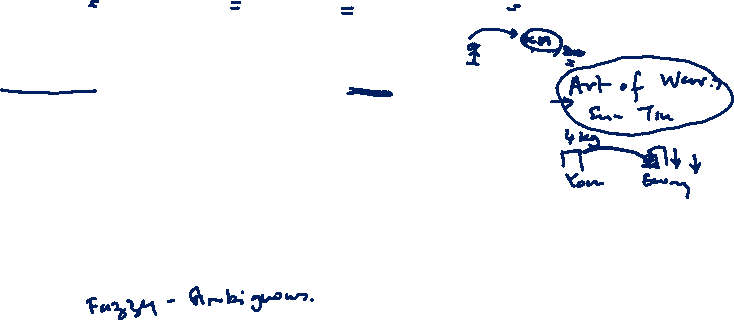 Art of War:
Sun Tzu
4 kg
You Enemy
Fuzzy - Ambiguous.